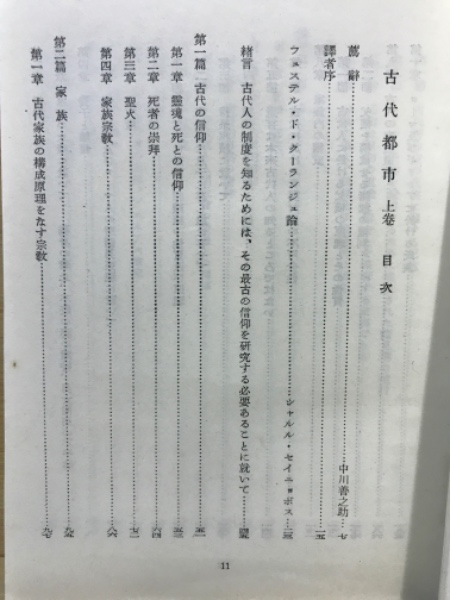 古代都市 上卷 目次
薦辭……中川善之助…七
譯者序……一五
フュステル・ド・クーランジュ論……シャルル・セイニョボス…三
緒言 古代人の制度を知るためには、その最古の信仰を研究する必要あることに就いて……
第一篇 古代の信仰……五一
第一章 靈魂と死との信仰……五三
第二章 死者の崇拜……六四
第三章 聖火……七二
第四章 家族宗敎……八六
第二篇 家族……九五
第一章 古代家族の構成原理をなす宗敎……九七
11